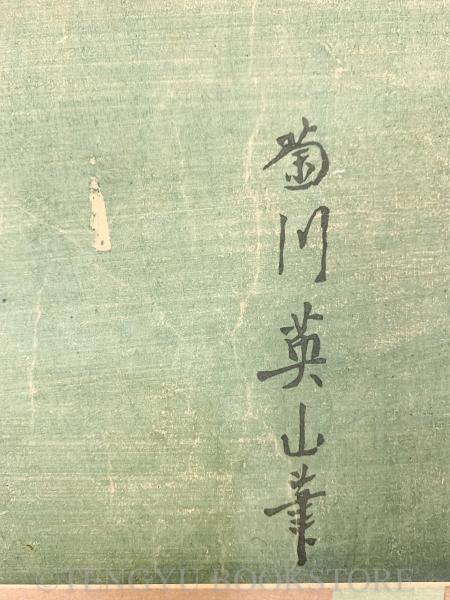 菊川英山筆
©TENGYU BOOKSTORE